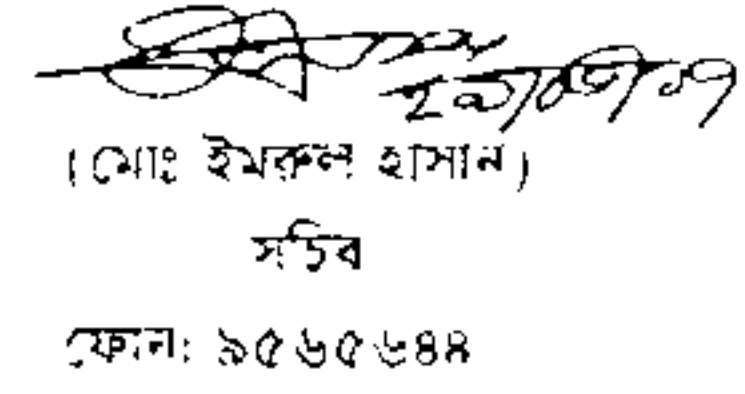 (মোঃ ইমরুল হাসান)
সচিব
ফোন: ৯৫৬৫৬৪৪